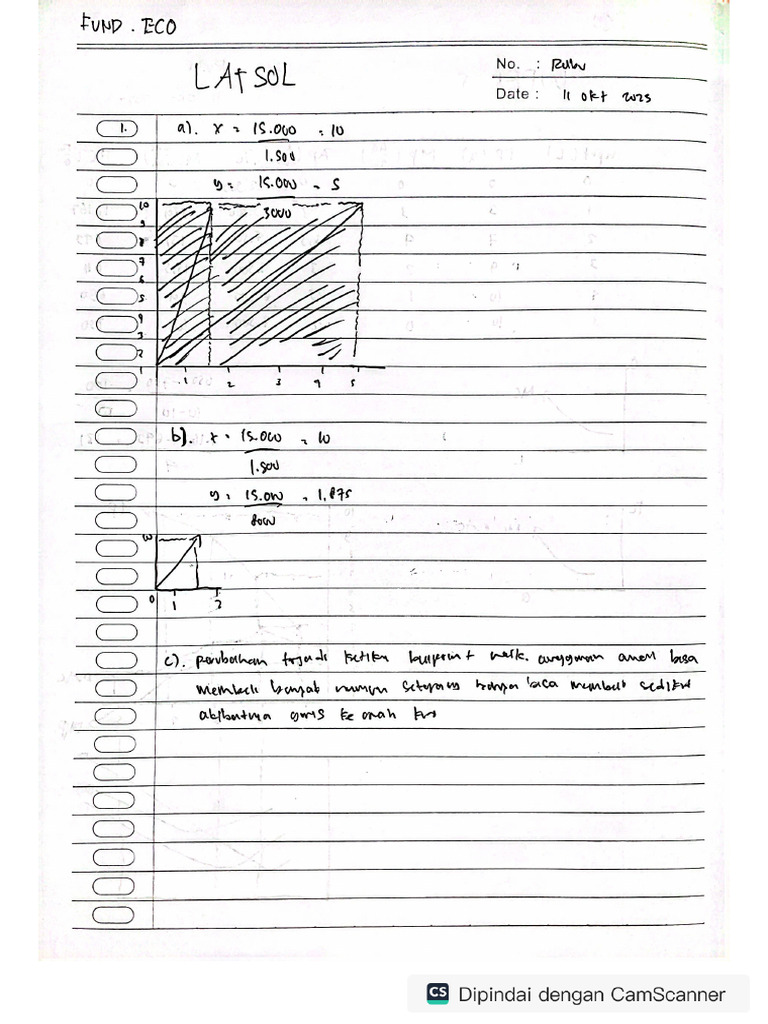 FUND. ECO
LATSOL
No. :
Date : 11 Okt 2025
1. a). x = 15.000 = 10
1.500
y = 15.000 = 5
3000
10
9
8
7
6
5
4
3
2
1 2 3 4 5
b). x = 15.000 = 10
1.500
y = 15.000 = 1,875
8000
10
0 1 2
c). perubahan terjadi ketika naik. anggaran bisa
membeli banyak namun sekarang hanya bisa membeli sedikit
akibatnya garis ke arah kiri
CS Dipindai dengan CamScanner